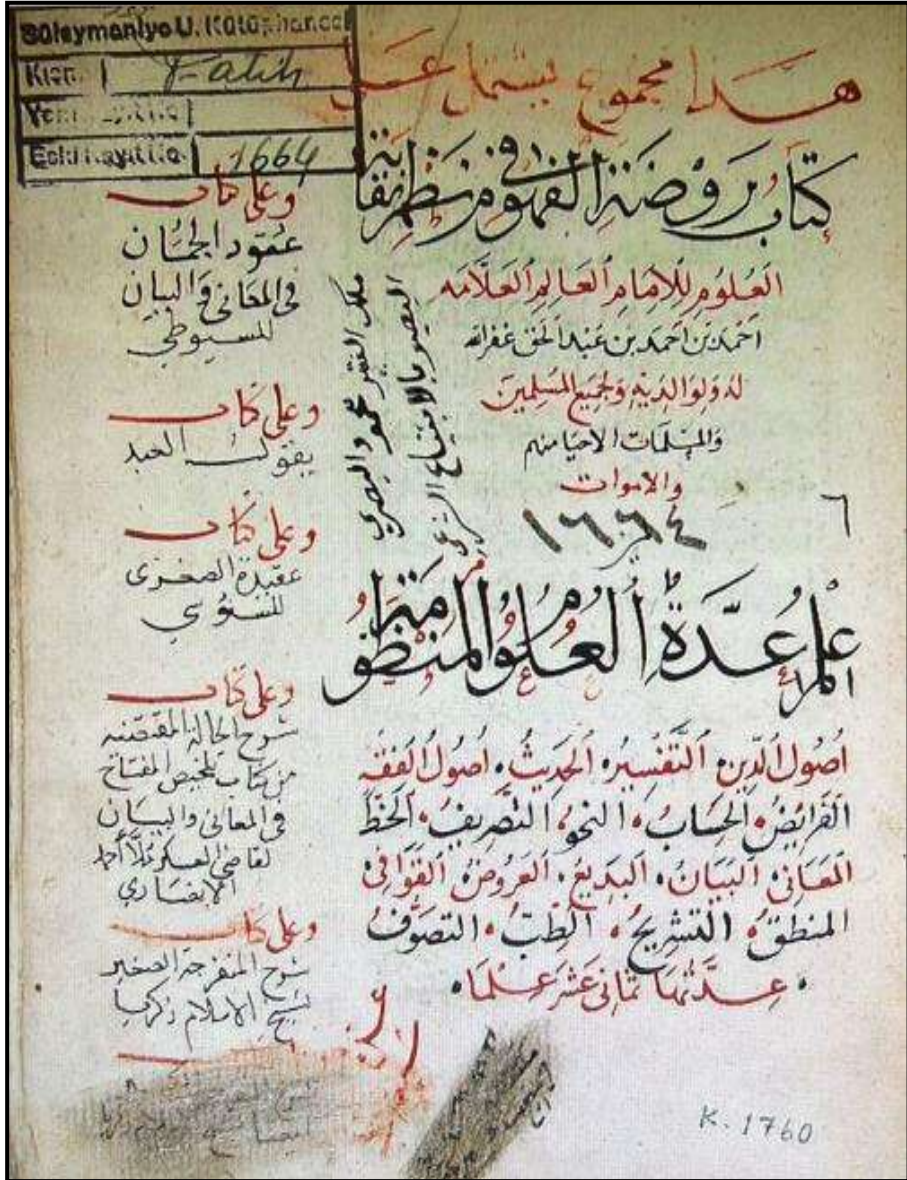 Süleymaniye U. Kütüphanesi
Kısmı Fatih
Yeni Kayıt No.
Eski Kayıt No. 1664
هذا مجموع يشتمل على
كتاب روضة الفهوم في نظم نقاية
العلوم للامام العالم العلامه
احمد بن احمد بن عبد الحق غفر الله
له ولوالديه ولجميع المسلمين
والمسلمات الاحيا منهم
والاموات
١٦٦٤
٦
اعلم عدة العلوم المنظومة
اصول الدين التفسير الحديث اصول الفقه
الفرايض الحساب النحو التصريف الخط
المعاني البيان البديع العروض القوافي
المنطق التشريح الطب التصوف
عدتها ثماني عشر علما
ملك الفقير محمود البصري
بالابتياع الشرعي
وعلى كتاب
عقود الجمان
في المعاني والبيان
للسيوطي
وعلى كتاب
يقول العبد
وعلى كتاب
عقيدة الصغرى
للسنوسي
وعلى كتاب
شرح
من كتاب تلخيص المفتاح
في المعاني والبيان
لقاضي العسكر ملا احمد
الانصاري
وعلى كتاب
شرح المنفرجة الصغير
لشيخ الاسلام زكريا
K. 1760